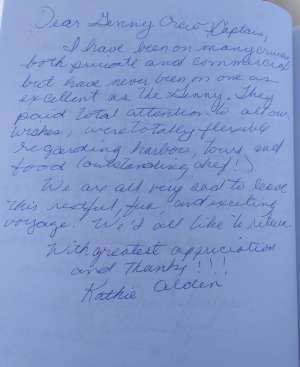 Dear Genny Crew & Captain,
I have been on many cruises
both private and commercial
but have never been on one as
excellent as the Genny. They
paid total attention to all our
wishes, were totally flexible
regarding harbors, tours and
food (outstanding chef!)
We are all very sad to leave
this restful, fun, and exciting
voyage! We'd all like to return
With greatest appreciation
and thanks!!!
Kathie Alden